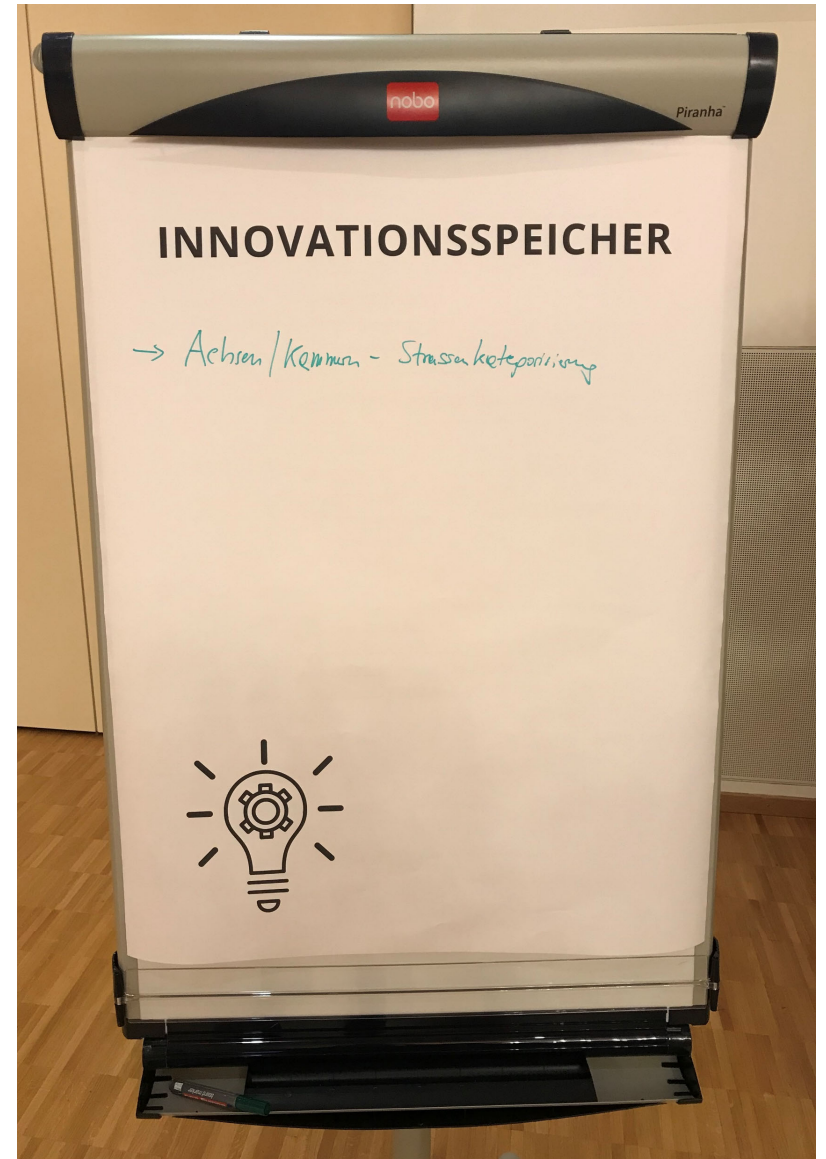 nobo
Piranha
INNOVATIONSSPEICHER
→ Achsen/Kammern - Strassenkategorisierung